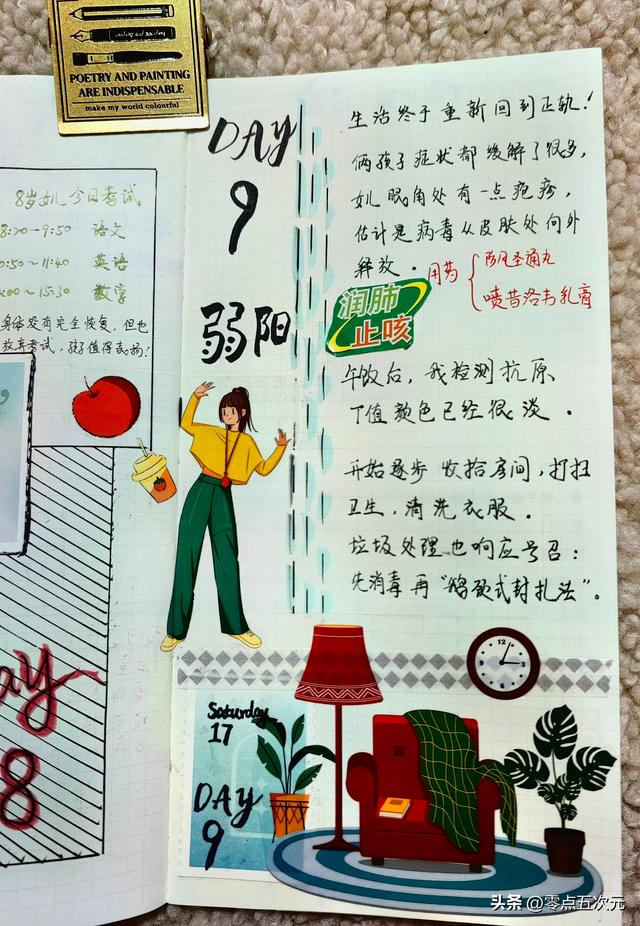 POETRY AND PAINTING
ARE INDISPENSABLE
make my world colourful
8岁女儿 今日考试
8:20-9:50 语文
0:50~11:40 英语
:00~15:30 数学
身体没有完全恢复,但也
放弃考试,孩子值得表扬!
ay
8
DAY
9
弱阳
生活终于重新回到正轨!
俩孩子症状都缓解了很多,
女儿眼角处有一点疱疹,
估计是病毒从皮肤处向外
释放。用药
防风圣通丸
喷昔洛韦乳膏
润肺
止咳
午饭后,我检测抗原
T值颜色已经很淡。
开始逐步收拾房间,打扫
卫生,清洗衣服。
垃圾处理也响应号召:
先消毒再“鹅颈式封扎法”。
12
3
6
9
Saturday
17
DAY
9
头条 @零点五次元